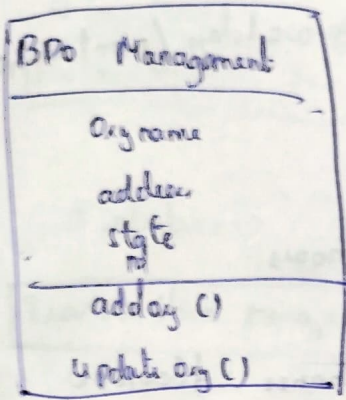 BPO Management
Orgname
address
state
addorg ()
update org ()